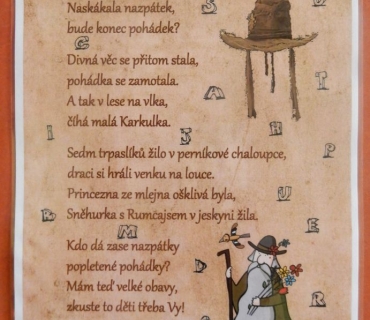 Naskákala nazpátek,
bude konec pohádek?
Divná věc se přitom stala,
pohádka se zamotala.
A tak v lese na vlka,
číhá malá Karkulka.
Sedm trpaslíků žilo v perníkové chaloupce,
draci si hráli venku na louce.
Princezna ze mlejna ošklivá byla,
Sněhurka s Rumcajsem v jeskyni žila.
Kdo dá zase nazpátky
popletené pohádky?
Mám teď velké obavy,
zkuste to děti třeba Vy!
S
G
T
A
I
J
H
P
P
U
E
R
M
D
R